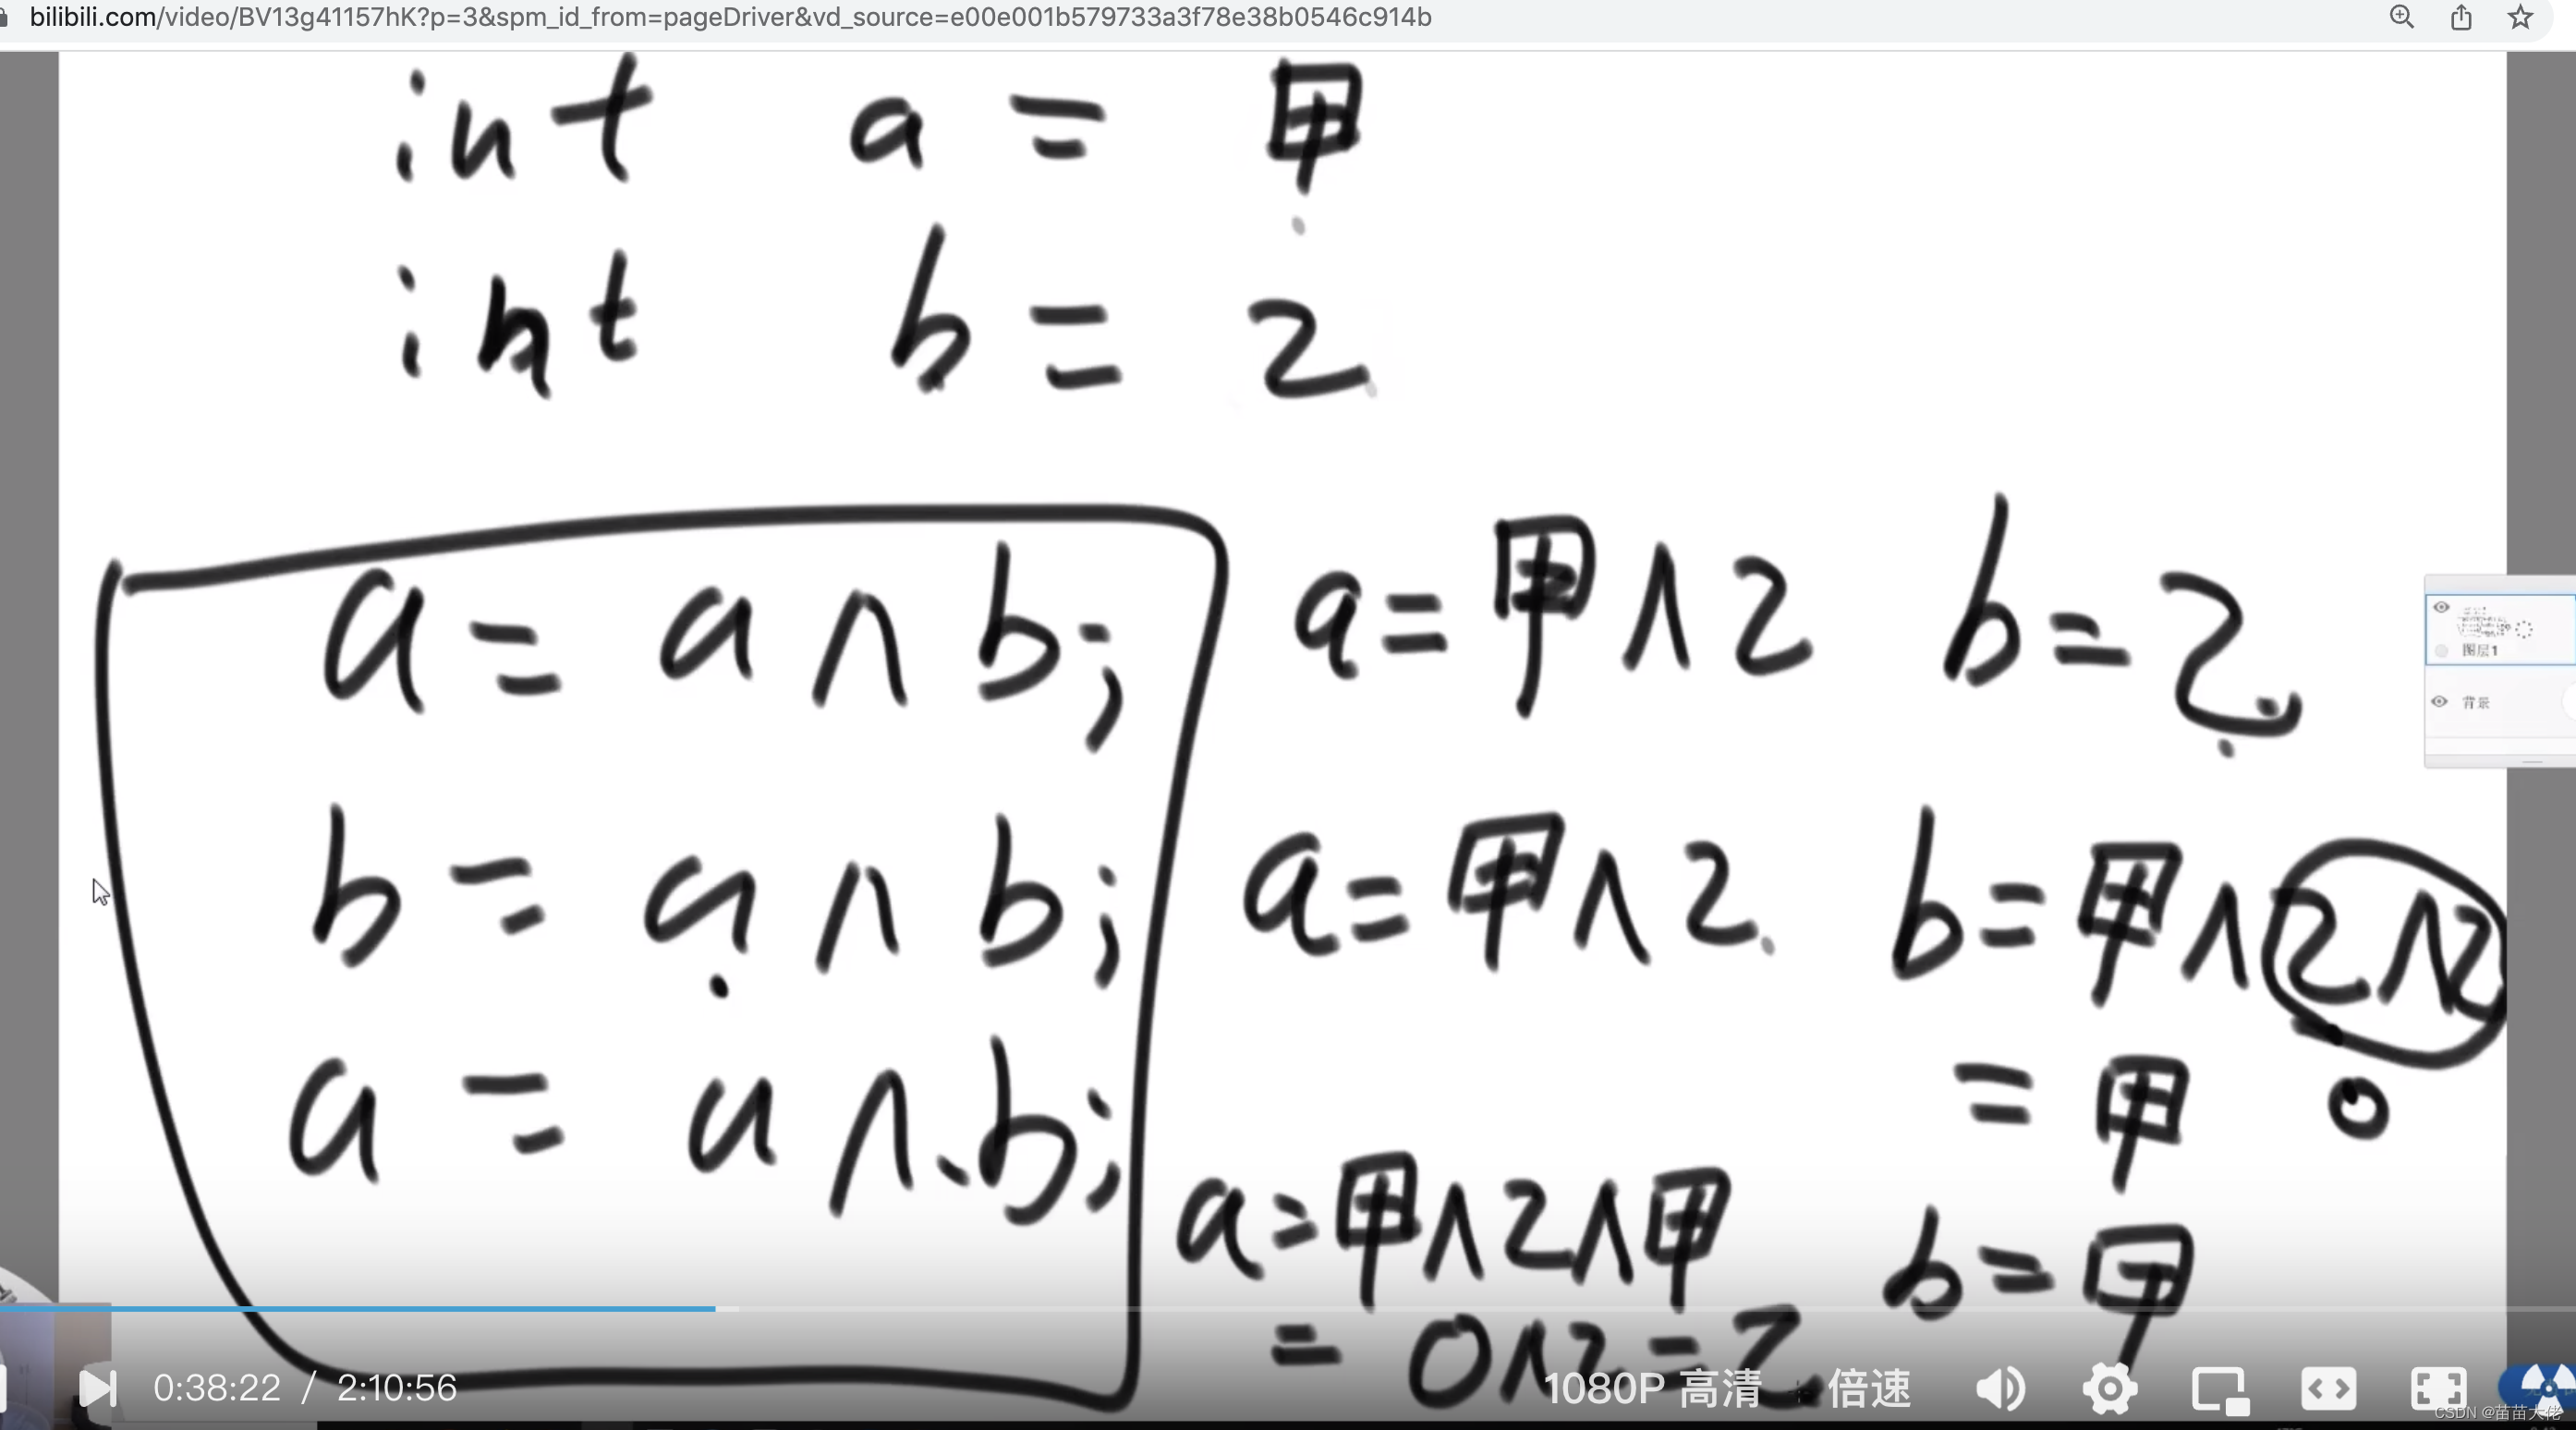 bilibili.com/video/BV13g41157hK?p=3&spm_id_from=pageDriver&vd_source=e00e001b579733a3f78e38b0546c914b
int a = 甲
int b = 乙
a = a ∧ b; a=甲∧乙 b=乙
图层1
背景
b = a ∧ b; a=甲∧乙 b=甲∧乙∧乙
= 甲 0
a = a ∧ b; a=甲∧乙∧甲 b=甲
= 0∧乙=乙
0:38:22 / 2:10:56 1080P 高清 倍速
CSDN @苗苗大佬